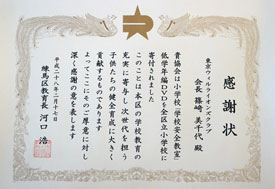 感謝状
東京ウィルライオンズクラブ
会長 篠﨑 美千代 殿
貴協会は小学校「学校安全教室」
低学年編DVDを全区立小学校に
寄付されました
このことは本区の学校教育の
充実に寄与し次世代を担う
子供たちの健全育成に大きく
貢献するものであります
よってここにそのご厚意に対し
深く感謝の意を表します
平成二十八年二月十七日
練馬区教育長 河口 浩